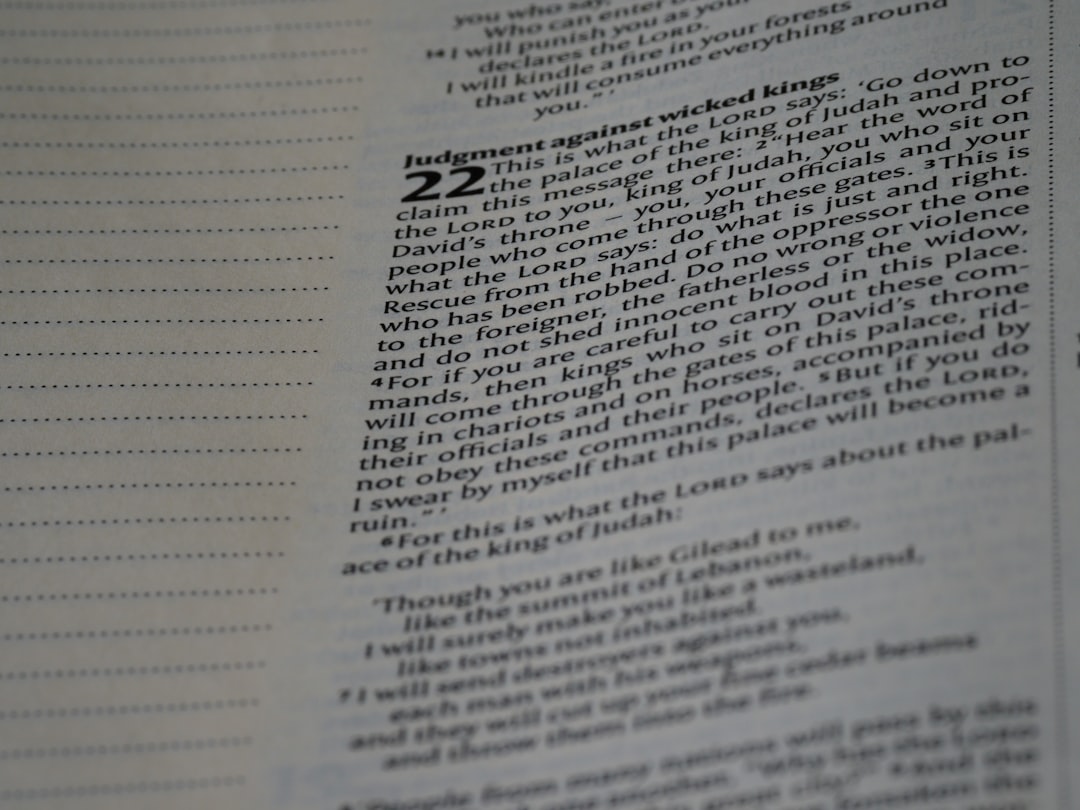 you who say,
'Who can enter
¹⁴ I will punish you as your
declares the LORD.
I will kindle a fire in your forests
that will consume everything around
you." '
Judgment against wicked kings
22 This is what the LORD says: 'Go down to
the palace of the king of Judah and pro-
claim this message there: ² "Hear the word of
the LORD to you, king of Judah, you who sit on
David's throne – you, your officials and your
people who come through these gates. ³ This is
what the LORD says: do what is just and right.
Rescue from the hand of the oppressor the one
who has been robbed. Do no wrong or violence
to the foreigner, the fatherless or the widow,
and do not shed innocent blood in this place.
⁴ For if you are careful to carry out these com-
mands, then kings who sit on David's throne
will come through the gates of this palace, rid-
ing in chariots and on horses, accompanied by
their officials and their people. ⁵ But if you do
not obey these commands, declares the LORD,
I swear by myself that this palace will become a
ruin." '
⁶ For this is what the LORD says about the pal-
ace of the king of Judah:
'Though you are like Gilead to me,
like the summit of Lebanon,
I will surely make you like a wasteland,
like towns not inhabited.
⁷ I will send destroyers against you,
each man with his weapons,
and they will cut up your fine cedar beams
and throw them into the fire.
People from many nations will pass by this